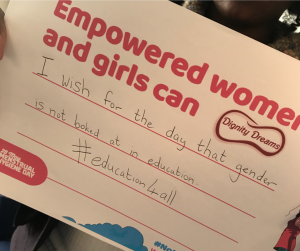 Empowered women
and girls can
I wish for the day that gender
is not boked at in education.
#education4all
Dignity Dreams
MENSTRUAL
HYGIENE DAY